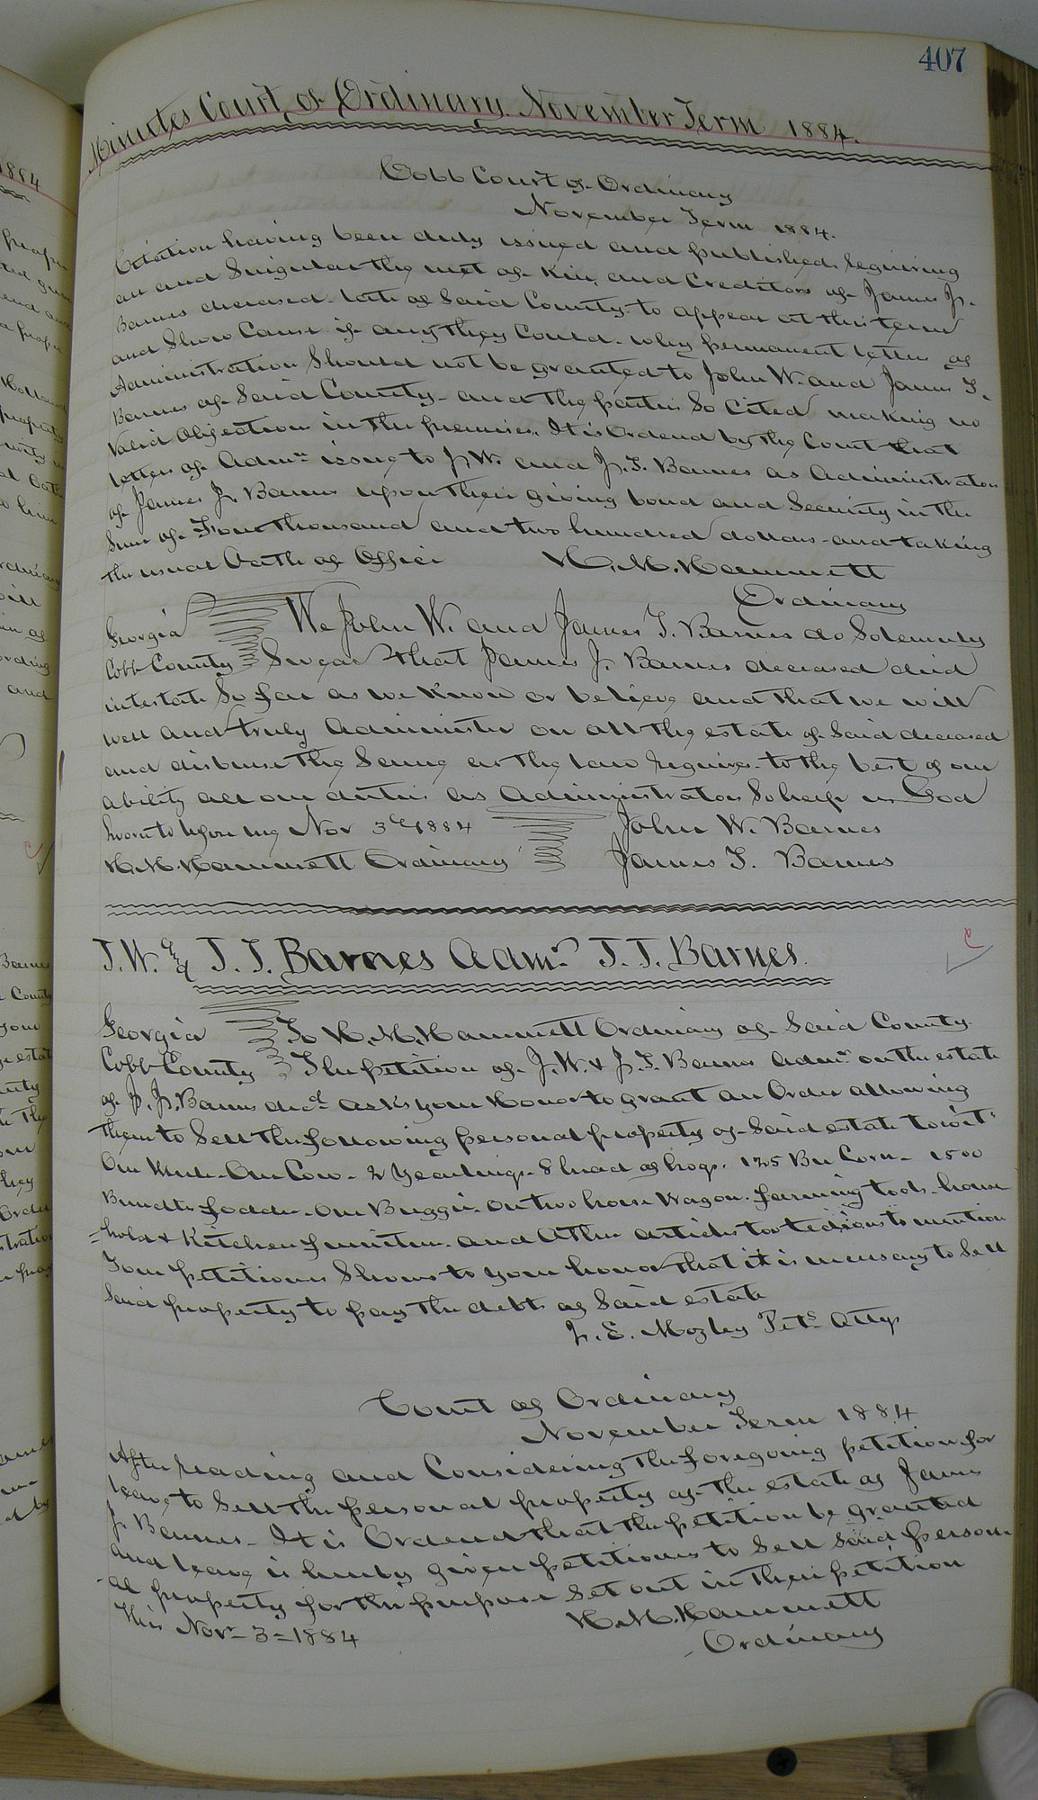 407
Minutes Court of Ordinary November Term 1884.
Cobb Court of Ordinary
November Term 1884.
Citation having been duly issued and published requiring
all and Singular the next of Kin and Creditors of James J.
Barnes deceased late of Said County to appear at this term
and Show Cause if any they Could why permanent letters of
Administration Should not be granted to John W. and James T.
Barnes of Said County and the parties So Cited making no
Valid Objection in the premises. It is Ordered by the Court that
letters of Admn issue to J. W. and J. T. Barnes as Administrators
of James J. Barnes upon their giving bond and Security in the
Sum of Four thousand and two hundred dollars and taking
the usual Oath of Office H. M. Hammett
Ordinary
Georgia We John W. and James T. Barnes do Solemnly
Cobb County Swear that James J. Barnes deceased died
intestate So far as we Know or believe and that we will
well and truly Administer on all the estate of Said deceased
and disburse the Same as the law requires to the best of our
ability all our duties as Administrators So help us God
Sworn to before me Nov 3d 1884 John W. Barnes
H. M. Hammett Ordinary James T. Barnes
J. W. & J. T. Barnes Admr J. J. Barnes.
Georgia To H. M. Hammett Ordinary of Said County.
Cobb County The petition of J. W. & J. T. Barnes Admr on the estate
of J. J. Barnes decd asks your Honor to grant an Order allowing
them to Sell the following personal property of Said estate towit:
One Mule One Cow 2 Yearlings 8 head of hogs. 125 Bu Corn 1500
Bundles fodder One Buggie On two horse Wagon. farming tools house
=hold & Kitchen furniture and Other articles too tedious to mention
Your petitioners Shows to your honor that it is necessary to Sell
Said property to pay the debts of Said estate
J. E. Mozley Pets Atty
Court of Ordinary
November Term 1884
After reading and Considering the foregoing petition for
leave to Sell the personal property of the estate of James
J. Barnes. It is Ordered that the petition be granted
and leave is hereby given petitioners to Sell Said person
-al property for the purpose Set out in their petition
This Novr 3 = 1884 H. M. Hammett
Ordinary